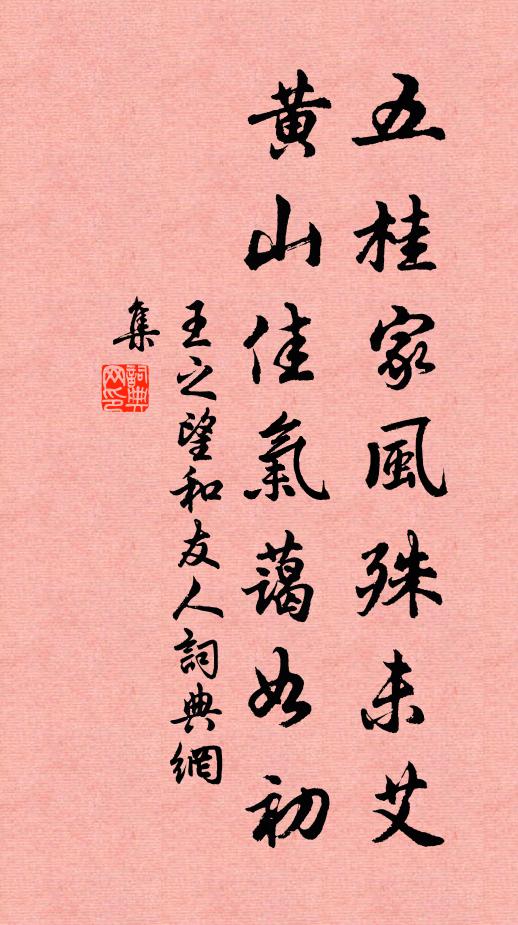 五桂家風殊未艾
黃山佳氣藹如初
王之望和友人詞典網
集
詞典
網印